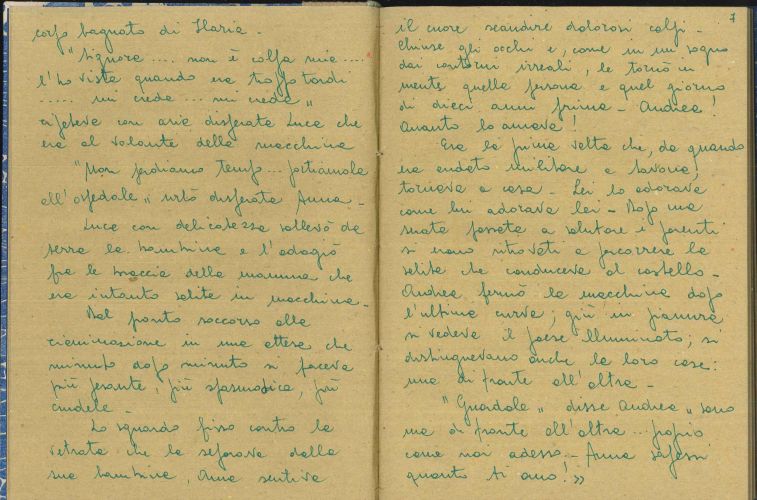 corpo bagnato di Ilaria -
"Signora .... non è colpa mia ....
l'ho vista quando era troppo tardi
..... mi creda ... mi creda"
ripeteva con aria disperata Luca che
era al volante della macchina
"Non perdiamo tempo ... portiamola
all'ospedale" urlò disperata Anna -
Luca con delicatezza sollevò da
terra la bambina e l'adagiò
fra le braccia della mamma che
era intanto salita in macchina -
Dal pronto soccorso alla
rianimazione in una attesa che
minuto dopo minuto si faceva
più pesante, più spasmodica, più
crudele -
Lo sguardo fisso contro la
vetrata che la separava dalla
sua bambina, Anna sentiva
7
il cuore scandire dolorosi colpi -
Chiuse gli occhi e, come in un sogno
dai contorni irreali, le tornò in
mente quella persona e quel giorno
di dieci anni prima - Andrea!
Quanto lo amava!
Era la prima volta che, da quando
era andato militare a Savona,
tornava a casa - Lei lo adorava
come lui adorava lei - Dopo una
serata passata a salutare i parenti
si erano ritrovati a percorrere la
salita che conduceva al castello -
Andrea fermò la macchina dopo
l'ultima curva; giù in pianura
si vedeva il paese illuminato; si
distinguevano anche le loro case:
una di fronte all'altra -
"Guardale" disse Andrea "sono
una di fronte all'altra ... proprio
come noi adesso - Anna sapessi
quanto ti amo!»